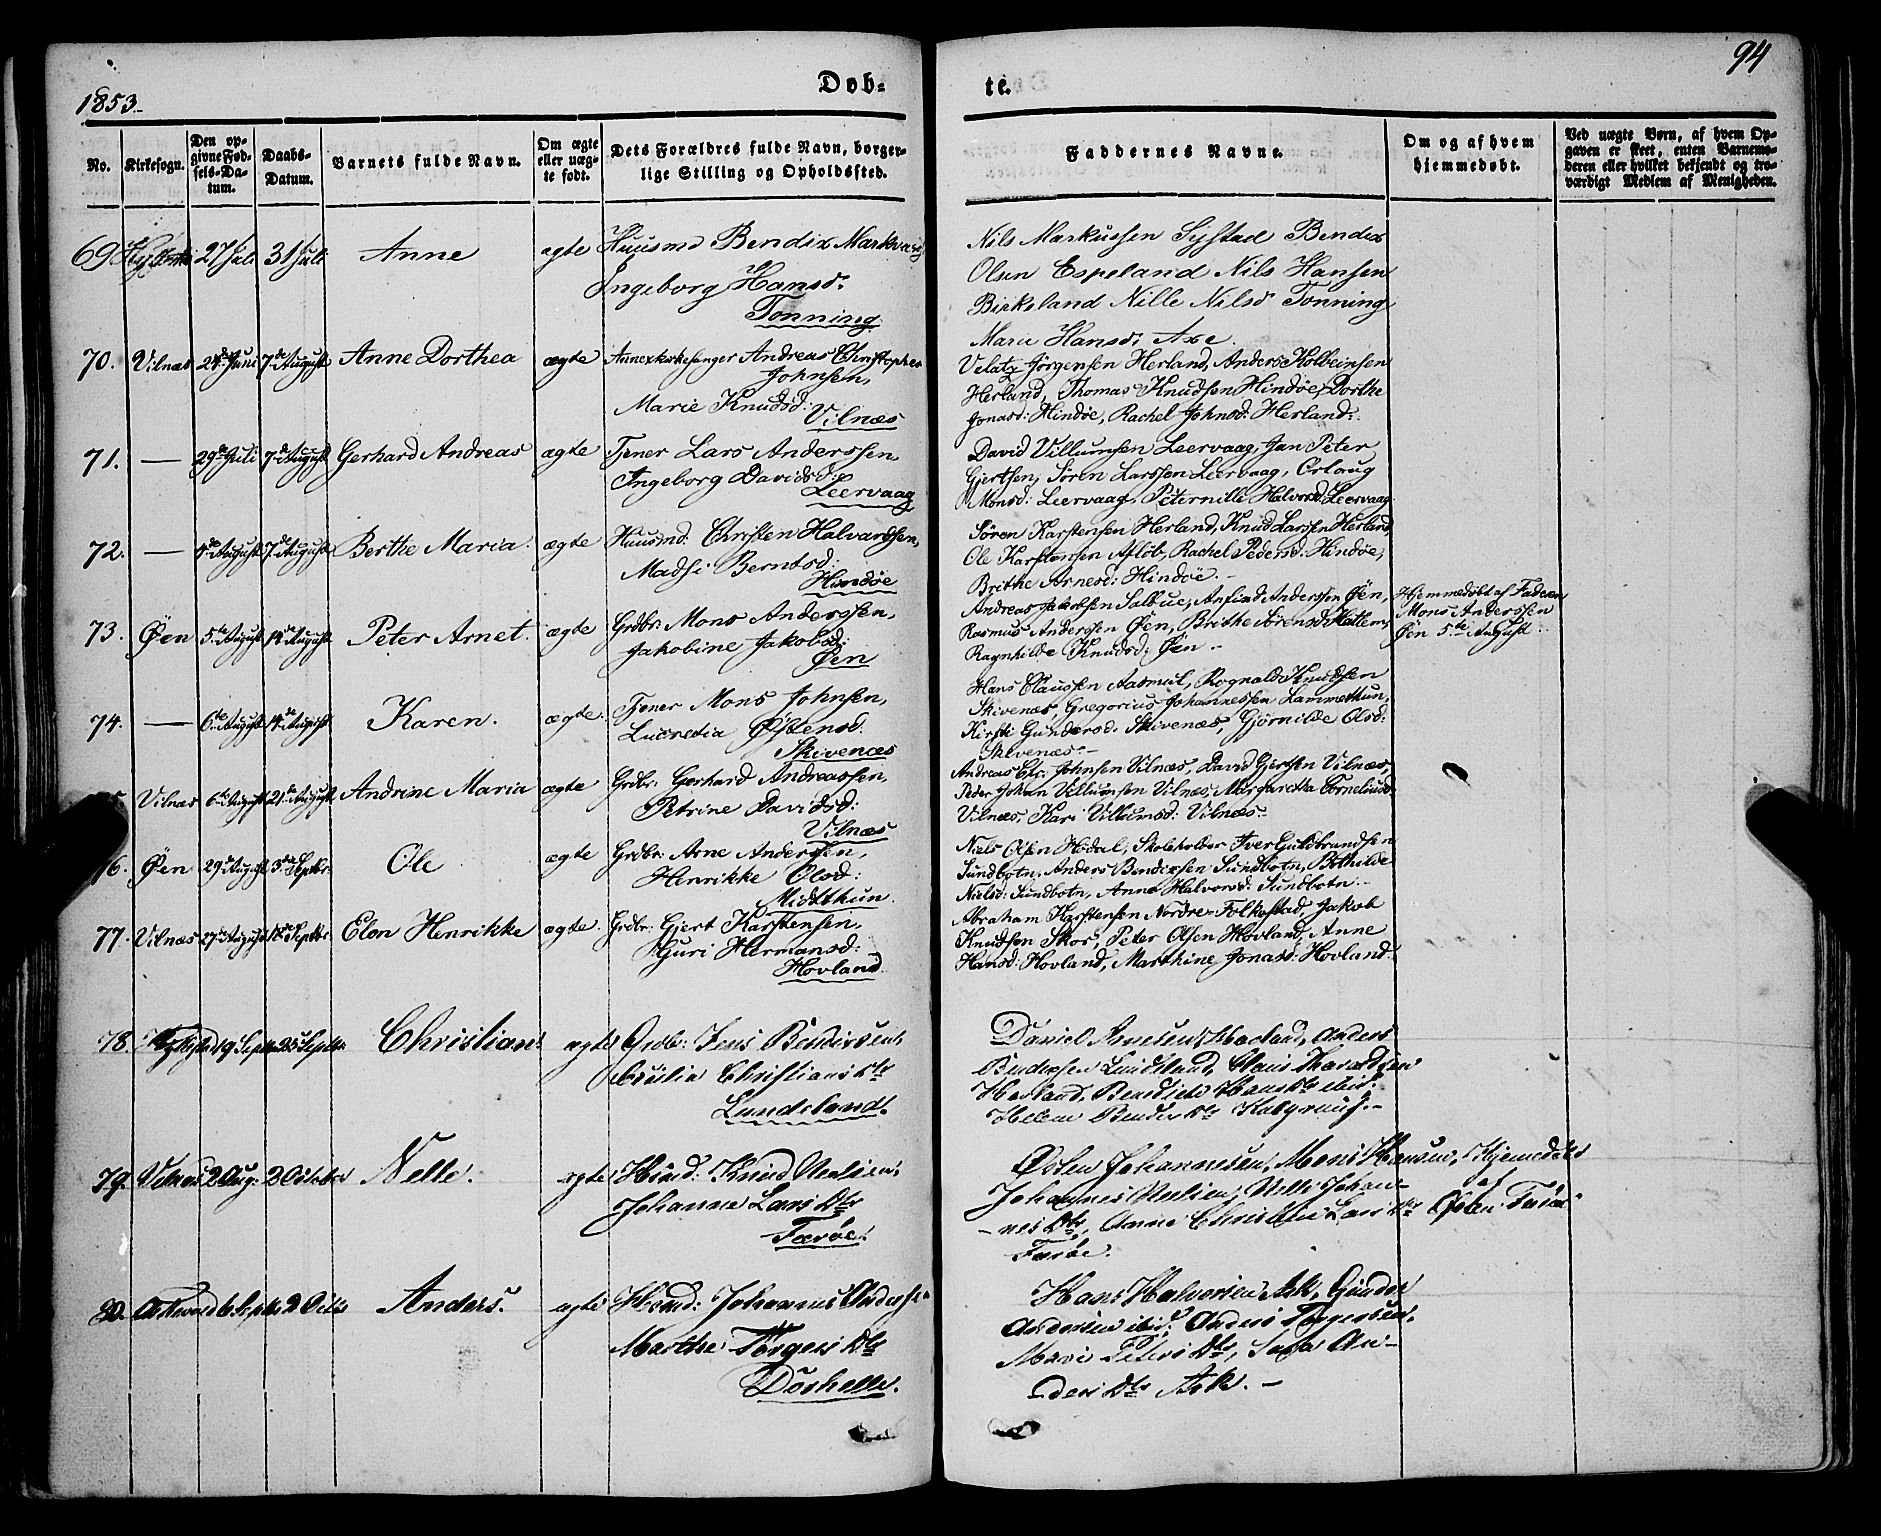 94
1853.
Døb-
te.
No.
Kirkesogn.
Den op-
givne Fød-
sels-Da-
tum.
Daabs-
Datum.
Barnets fulde Navn.
Om ægte
eller uæg-
te født.
Dets Forældres fulde Navn, borger-
lige Stilling og Opholdssted.
Faddernes Navne.
Om og af hvem
hjemmedøbt.
Ved uægte Børn, af hvem Op-
gaven er skeet, enten Barnemo-
deren eller hvilket bekjendt og tro-
værdigt Medlem af Menigheden.
69. 27 Juli 31 Juli Anne ægte Huusmd Bendix
Ingeborg Hansd.
Tonning
Nils Markussen Systad Bendix
Olsen Espeland Nils Hansen
Birkeland Nille Nilsd Tonning
Marie Hansd. Axe.
70. Vilnæs 7de August Anne Dorthea ægte Annexkirkesanger Andreas Christopher
Johnsen,
Marie Knudsd:
Vilnæs
Jørgensen Herland, Anders Kolbeinsen
Herland, Thomas Knudsen Hindøe, Dorthe
Jonasd: Hindøe, Rachel Johnsd: Herland.
71. — 29de Juli 7de August Gerhard Andreas ægte Tjener Lars Anderssen,
Ingeborg Davidsd:
Leervaag
David Villumsen Leervaag, Jan Peter
Gjertsen, Søren Larssen Leervaag,
Monsd: Leervaag, Peternille Halvorsd: Leervaag
72. — August 7de August Berthe Maria. ægte Huusmd: Christen Halvardsen,
Madsi Berntsd:
Hindøe
Søren Karstensen Herland, Knud Larssen Herland,
Ole Karstensen Rachel Pedersd: Hindøe,
Brithe Arnesd: Hindøe.
73. Øen 5te August 14de August Peter Arnet. ægte Grdbr: Mons Anderssen,
Jakobine Jakobsd:
Øen
Andreas Jakobsen Salbue, Anfind Anderssen Øen,
Rasmus Anderssen Øen, Brithe Sørensd: Hatlem,
Ragnhilde Knudsd: Øen -
Hjemmedøbt af Faderen
Mons Anderssen
Øen 5te August.
74. — 6te August 14de August Karen. ægte. Tjener Mons Johnsen,
Lucretia Østensd:
Skivenæs
Hans Claussen Aasmul, Rognald Knudsen
Skivenæs, Gregorius Johannessen Lammethun,
Kirsti Gundersd. Skivenæs, Gjørnilde Olsd:
Skivenæs. -
Vilnæs 6te August 21de August Andrine Maria ægte Grdbr: Gerhard Andreassen,
Petrine Davidsd:
Vilnæs
Andreas Chr: Johnsen Vilnæs, David Gjertsen Vilnæs,
Peder Johan Villumsen Vilnæs, Margaretha Corneliusd:
Vilnæs, Kari Villumsd: Vilnæs.
76. Øen 29de August 3de Septbr: Ole ægte Grdbr: Arne Anderssen,
Henrikke Olsd:
Midtthun
Niels Olsen Hodal, Skoleholder Iver Guldbrandsen
Sundbotn, Anders Bendixsen Sundbotn, Bothilde
Nielsd: Sundbotn, Anne Halvorsd: Sundbotn.
77. Vilnæs 27de August Septbr: Elen Henrikke ægte. Grdbr: Gjert Karstensen,
Guri Hermansd:
Hovland
Abraham Karstensen Nordre-Folkestad, Jakob
Knudsen Skor, Peter Olsen Hovland, Anne
Hansd: Hovland, Marthine Jonasd: Hovland.
78. 19 Septbr 25 Septbr Christian. ægte Grdbr: Jens Bendixsen,
Cicilia Christiansdtr
Lundeland.
Daniel Anders
Bendixsen Lundeland, Claus
Havland, Benedicte Hansdtr ibid,
Helene Bendixdtr
79. Vilnæs 2 Aug: 2 October Nelle. ægte Hsmd: Knud Nielsen,
Johanne Larsdtr
Færøe.
Østen Johannesen, Mons Hansen,
Johannes Nielsen, Nelle Johan-
-nesdtr, Anne Christine Larsdtr
Færøe.
Hjemedøbt
af
Østen Færøe
80. Askevold 6 Septbr 2 Octbr Anders. ægte Hsmd: Johannes Andersen
Marthe Torgersdtr
Hans Halvorsen Ask, Gunder
Andersen ibid, Anders Torgersen,
Mari Petersdtr, An-
dersdtr Ask. -